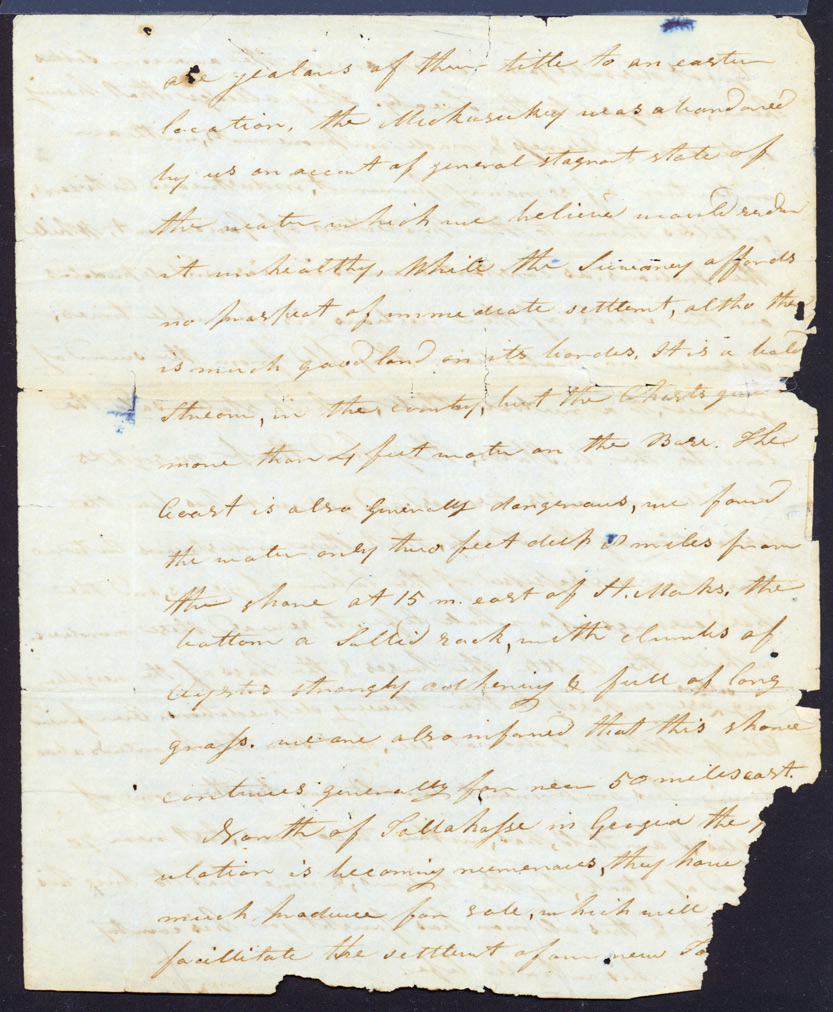 are jealous of their title to an eastern
location, the Mickasukey was abandoned
by us on account of general stagnant state of
the water which we believed would render
it unhealthy, While the Suwaney affords
no prospect of immediate settlemt, altho ther
is much good land on its borders. It is a bold
Stream, in the county, but the Charts give
more than 4 feet water on the Barr. The
Coast is also Generally dangerous, we found
the water only two feet deep 8 miles from
the shore at 15 m. east of St. Marks. the
bottom a Sollid rock, with clumbs of
oysters strongly adhering & full of long
grass. we are also informed that this shore
continues generally for near 50 miles east.
North of Tallahasse in Georgia the
ulation is becoming numerous, they have
much produce for sale, which will
facillitate the settlemt of our new